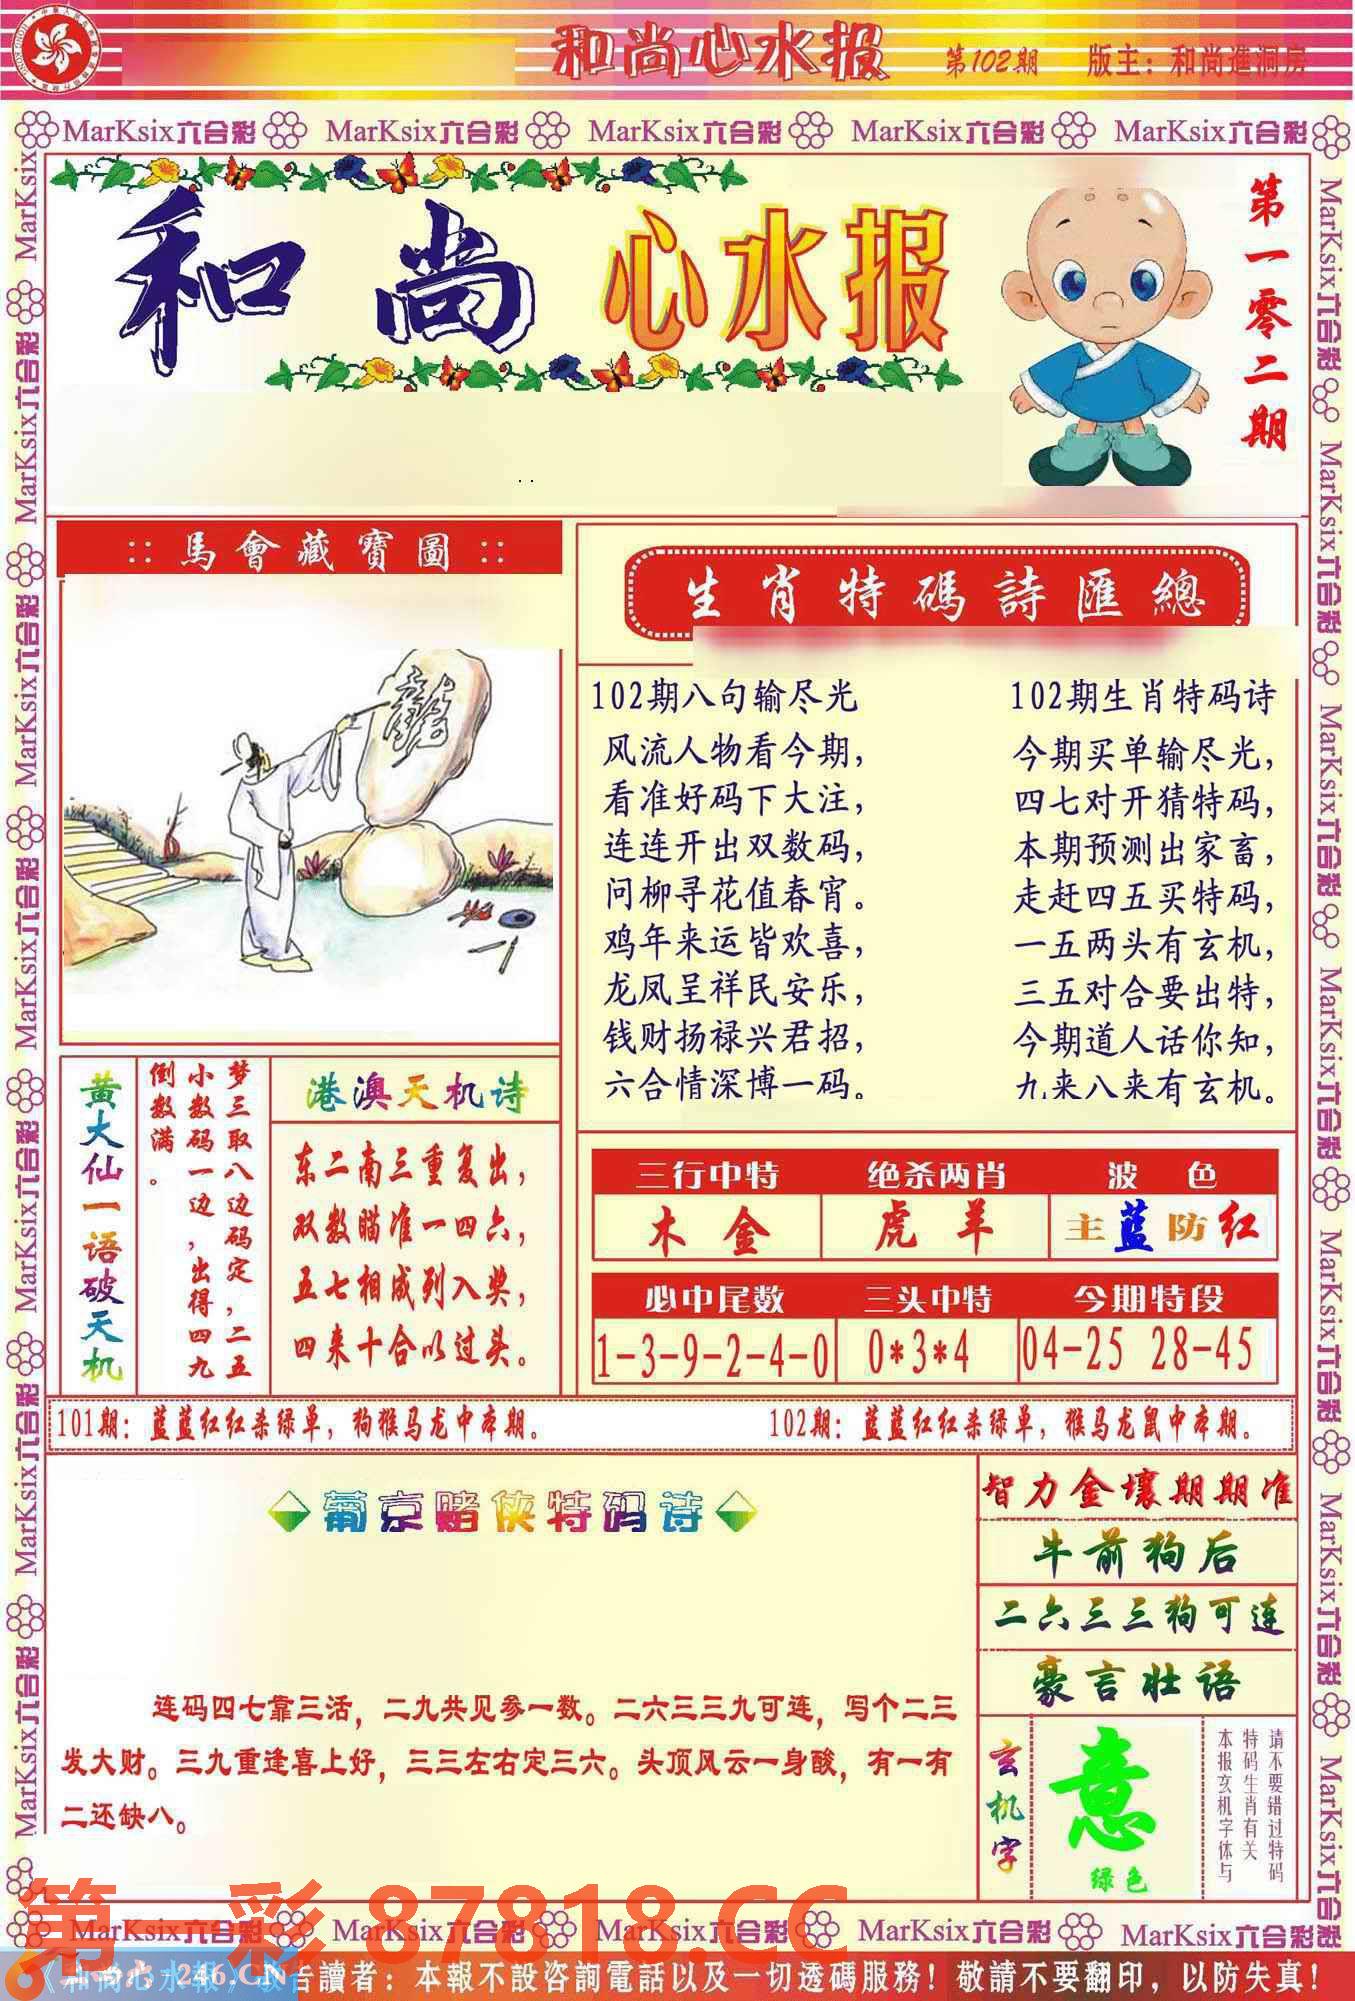 和尚心水报
第102期
版主：和尚進洞房
MarKsix六合彩 MarKsix六合彩 MarKsix六合彩 MarKsix六合彩 MarKsix六合彩
和尚心水报
第一零二期
馬會藏寶圖
生肖特碼詩匯總
102期八句输尽光
风流人物看今期，
看准好码下大注，
连连开出双数码，
问柳寻花值春宵。
鸡年来运皆欢喜，
龙凤呈祥民安乐，
钱财扬禄兴君招，
六合情深博一码。
102期生肖特码诗
今期买单输尽光，
四七对开猜特码，
本期预测出家畜，
走赶四五买特码，
一五两头有玄机，
三五对合要出特，
今期道人话你知，
九来八来有玄机。
黄大仙一语破天机
梦三取八边码定，二五
小数码一边，出得四九
倒数满。
港澳天机诗
东二南三重复出，
双数瞄准一四六，
五七相成列入奖，
四来十合以过头。
三行中特 绝杀两肖 波色
木金 虎羊 主蓝防红
必中尾数 三头中特 今期特段
1-3-9-2-4-0 0*3*4 04-25 28-45
101期：蓝蓝红红杀绿单，狗猴马龙中本期。
102期：蓝蓝红红杀绿单，猴马龙鼠中本期。
葡京赌侠特码诗
连码四七靠三活，二九共见参一数。二六三三九可连，写个二三
发大财。三九重逢喜上好，三三左右定三六。头顶风云一身酸，有一有
二还缺八。
智力金壤期期准
牛前狗后
二六三三狗可连
豪言壮语
玄机字
意
绿色
请不要错过特码
特码生肖有关
本报玄机字体与
第一彩 87818.CC
MarKsix六合彩 MarKsix六合彩 MarKsix六合彩 MarKsix六合彩 MarKsix六合彩
《和尚心水報》
246.CN
告讀者：本報不設咨詢電話以及一切透碼服務！敬請不要翻印，以防失真！